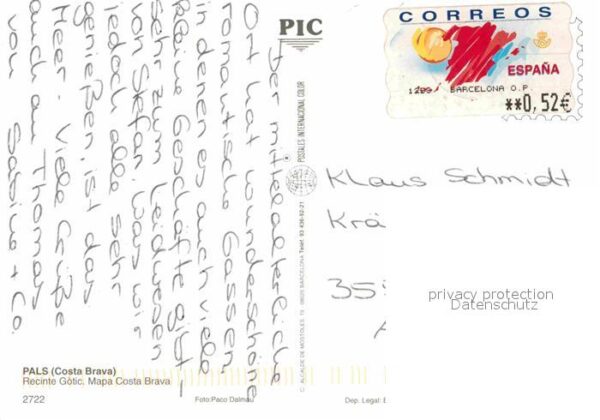 Der mittelalterliche
Ort hat wunderschöne
romantische Gassen
in denen es auch viele
tolle Geschäfte gibt -
sehr zum Leidwesen
von Stefan. Was wir
jedoch alle sehr
genießen, ist das
Meer. Viele Grüße
auch an Thomas
von Sabine + Co.
PIC
POSTALES INTERNACIONAL COLOR
C. ALCALDE DE MOSTOLES, 08025 BARCELONA Teléf. 93 436-92-21
CORREOS
ESPAÑA
1299 BARCELONA O.P.
**0,52€
Klaus Schmidt
Krä
35
privacy protection
Datenschutz
PALS (Costa Brava)
Recinte Gòtic. Mapa Costa Brava
2722
Foto: Paco Dalmau
Dep. Legal: B